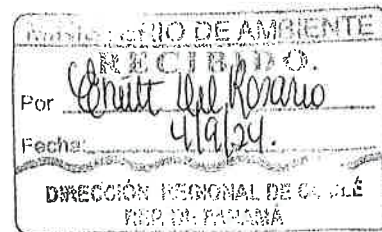 MINISTERIO DE AMBIENTE
RECIBIDO.
Por
del Rosario
Fecha: 4/9/24.
DIRECCIÓN REGIONAL DE COCLÉ
REP. DE PANAMÁ